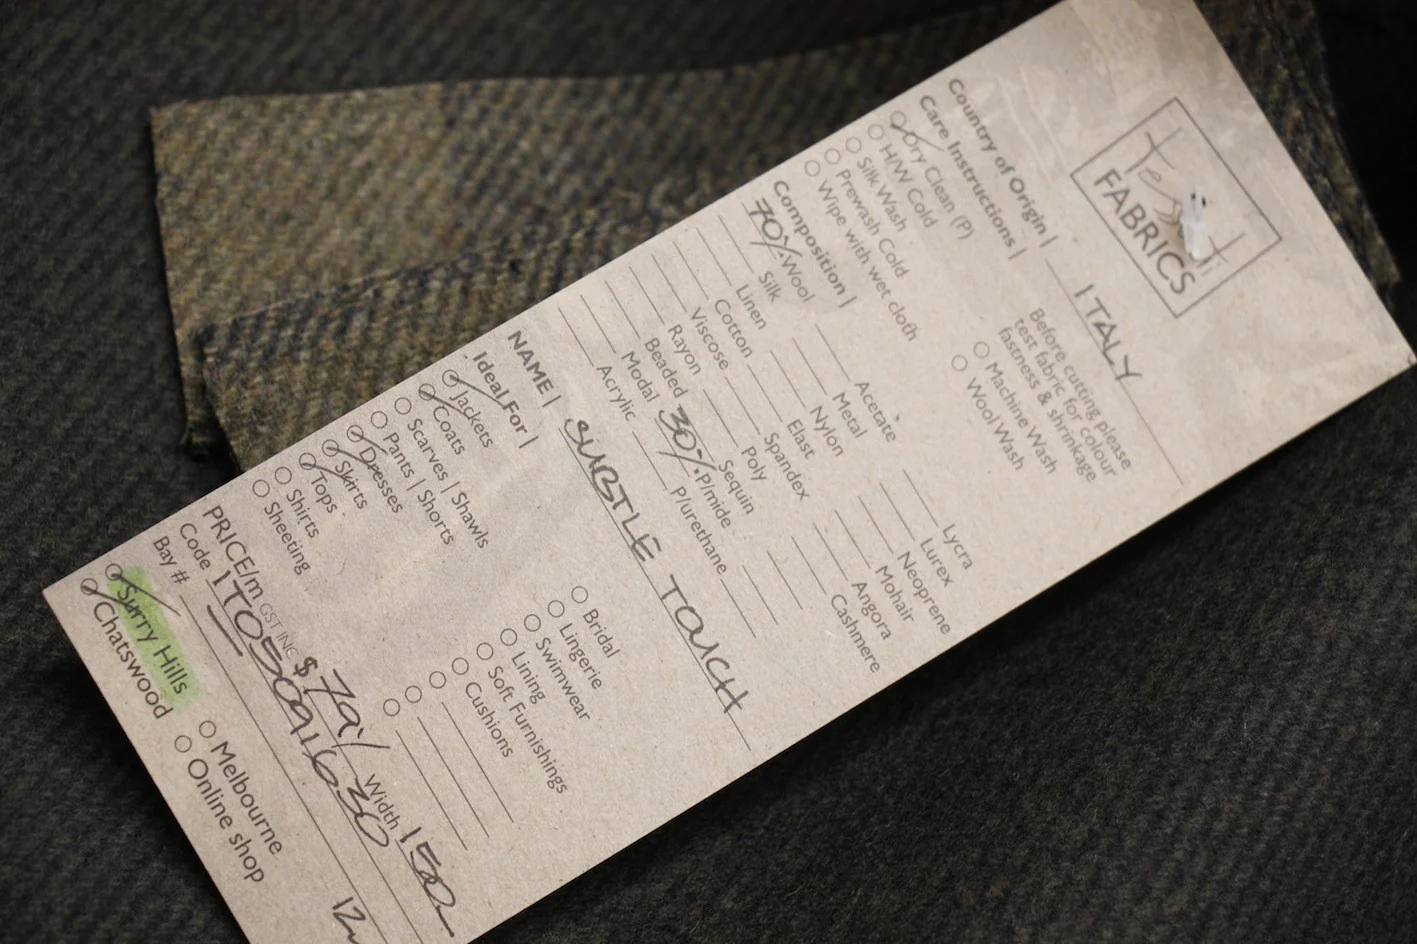 tessuti
FABRICS
Country of Origin | ITALY
Care Instructions |
Dry Clean (P)
H/W Cold
Silk Wash
Prewash Cold
Wipe with wet cloth
Before cutting, please
test fabric for colour
fastness & shrinkage
Machine Wash
Wool Wash
Composition |
70% Wool
Silk
Linen
Cotton
Viscose
Rayon
Beaded
Modal
Acrylic
Acetate
Metal
Nylon
Elast
Spandex
Poly
Sequin
30% P/mide
P/urethane
Lycra
Lurex
Neoprene
Mohair
Angora
Cashmere
NAME | SUBTLE TOUCH
Ideal For |
Jackets
Coats
Scarves | Shawls
Pants | Shorts
Dresses
Skirts
Tops
Shirts
Sheeting
Bridal
Lingerie
Swimwear
Lining
Soft Furnishings
Cushions
PRICE/m GST INC $ Width 150
Code 1T05091630
Bay #
Surry Hills
Chatswood
Melbourne
Online shop